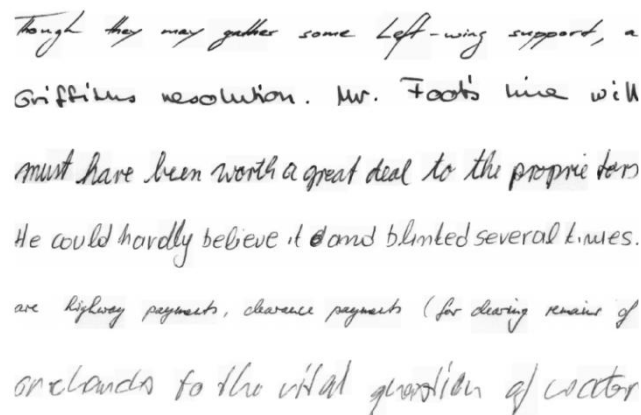 Though they may gather some Left-wing support, a
Griffiths resolution. Mr. Foot's line will
must have been worth a great deal to the proprietors
He could hardly believe it and blinked several times.
are highway payments, clearance payments (for clearing remains of
orchards to the vital question of water